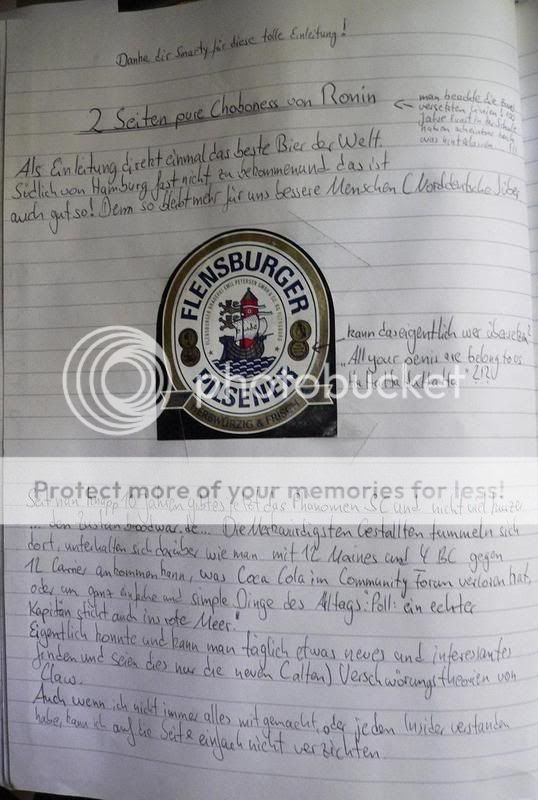 Danke dir Smarty für diese tolle Einleitung!
2 Seiten pure Choboness von Ronin
man beachte die
versetzten Linien! 
Jahre Kunst in der Schule
haben scheinbar doch
was hinterlassen
Als Einleitung direkt einmal das beste Bier der Welt.
Südlich von Hamburg fast nicht zu bekommen und das ist
auch gut so! Denn so bleibt mehr für uns bessere Menschen (Norddeutsche) über
FLENSBURGER
FLENSBURGER BRAUEREI EMIL PETERSEN GMBH & CO. KG FLENSBURG
PILSENER
HERBWÜRZIG & FRISCH
kann das eigentlich wer übersetzen?
"All your benis are belong to us
photobucket
Protect more of your memories for less!
Seit nun knapp 10 Jahren gibt es jetzt das Phänomen SC und nicht viel kürzer
... den Broodwar.de... Die Merkwürdigsten Gestallten tummeln sich
dort, unterhalten sich darüber wie man mit 12 Marines und 4 BC gegen
12 Carrier ankommen kann, was Coca Cola im Community Forum verloren hat,
oder um ganz einfache und simple Dinge des Alltags: "Poll: ein echter
Kapitän sticht auch ins rote Meer."
Eigentlich konnte und kann man täglich etwas neues und interessantes
finden und seien dies nur die neuen (alten) Verschwörungstheorien von
Claw.
Auch wenn ich nicht immer alles mitgemacht, oder jeden Insider verstanden
habe, kann ich auf die Seite einfach nicht verzichten.